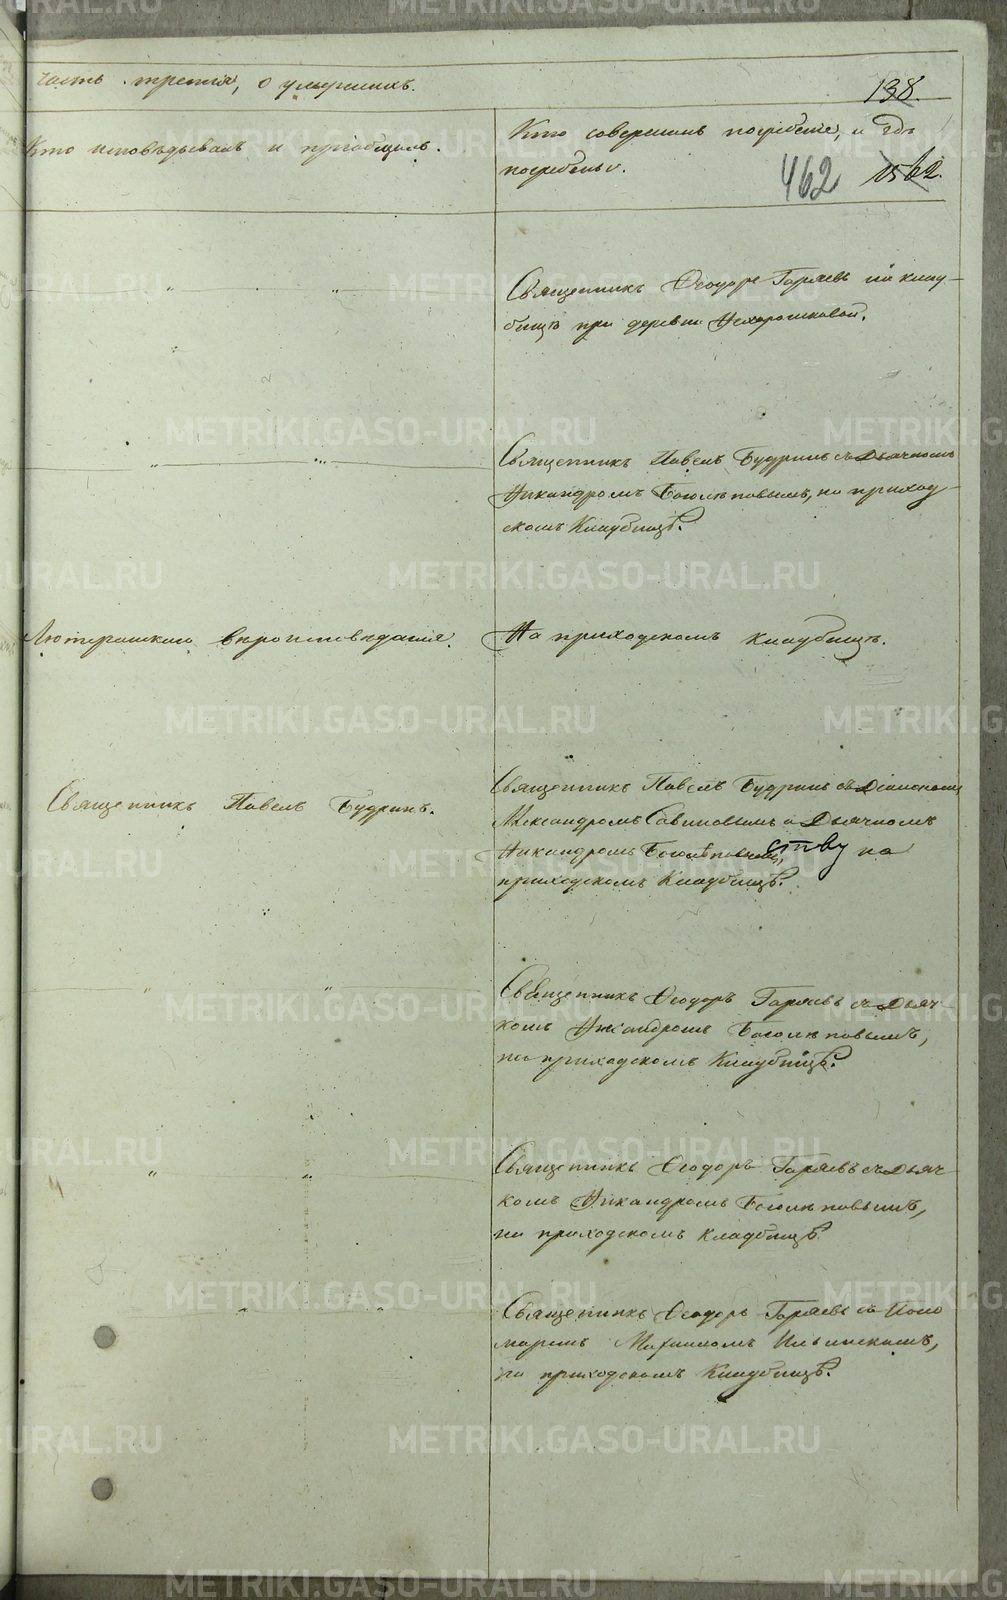 часть третія, о умершихъ.
138.
Кто исповѣдывалъ и пріобщалъ.
Кто совершалъ погребеніе, и гдѣ
погребены.
462
1562.
Священникъ Ѳеодоръ Горяевъ на клад-
бищѣ при деревни Нехорошковой.
Священникъ Павелъ Будринъ съ Дьячкомъ
Никандромъ Боголѣповымъ, на приход-
скомъ Кладбищѣ.
Лютеранскаго Вѣроисповѣданія.
На приходскомъ кладбищѣ.
Священникъ Павелъ Будринъ.
Священникъ Павелъ Будринъ съ Діакономъ
Александромъ Савиновымъ и Дьячкомъ
Никандромъ Боголѣповымъ, на
приходскомъ Кладбищѣ.
Священникъ Ѳеодоръ Горяевъ съ Дьяч-
комъ Никандромъ Боголѣповымъ,
на приходскомъ Кладбищѣ.
Священникъ Ѳеодоръ Горяевъ съ Дьяч-
комъ Никандромъ Боголѣповымъ,
на приходскомъ кладбищѣ.
Священникъ Ѳеодоръ Горяевъ съ Поно
маремъ Ильинскимъ,
на приходскомъ Кладбищѣ.
METRIKI.GASO-URAL.RU